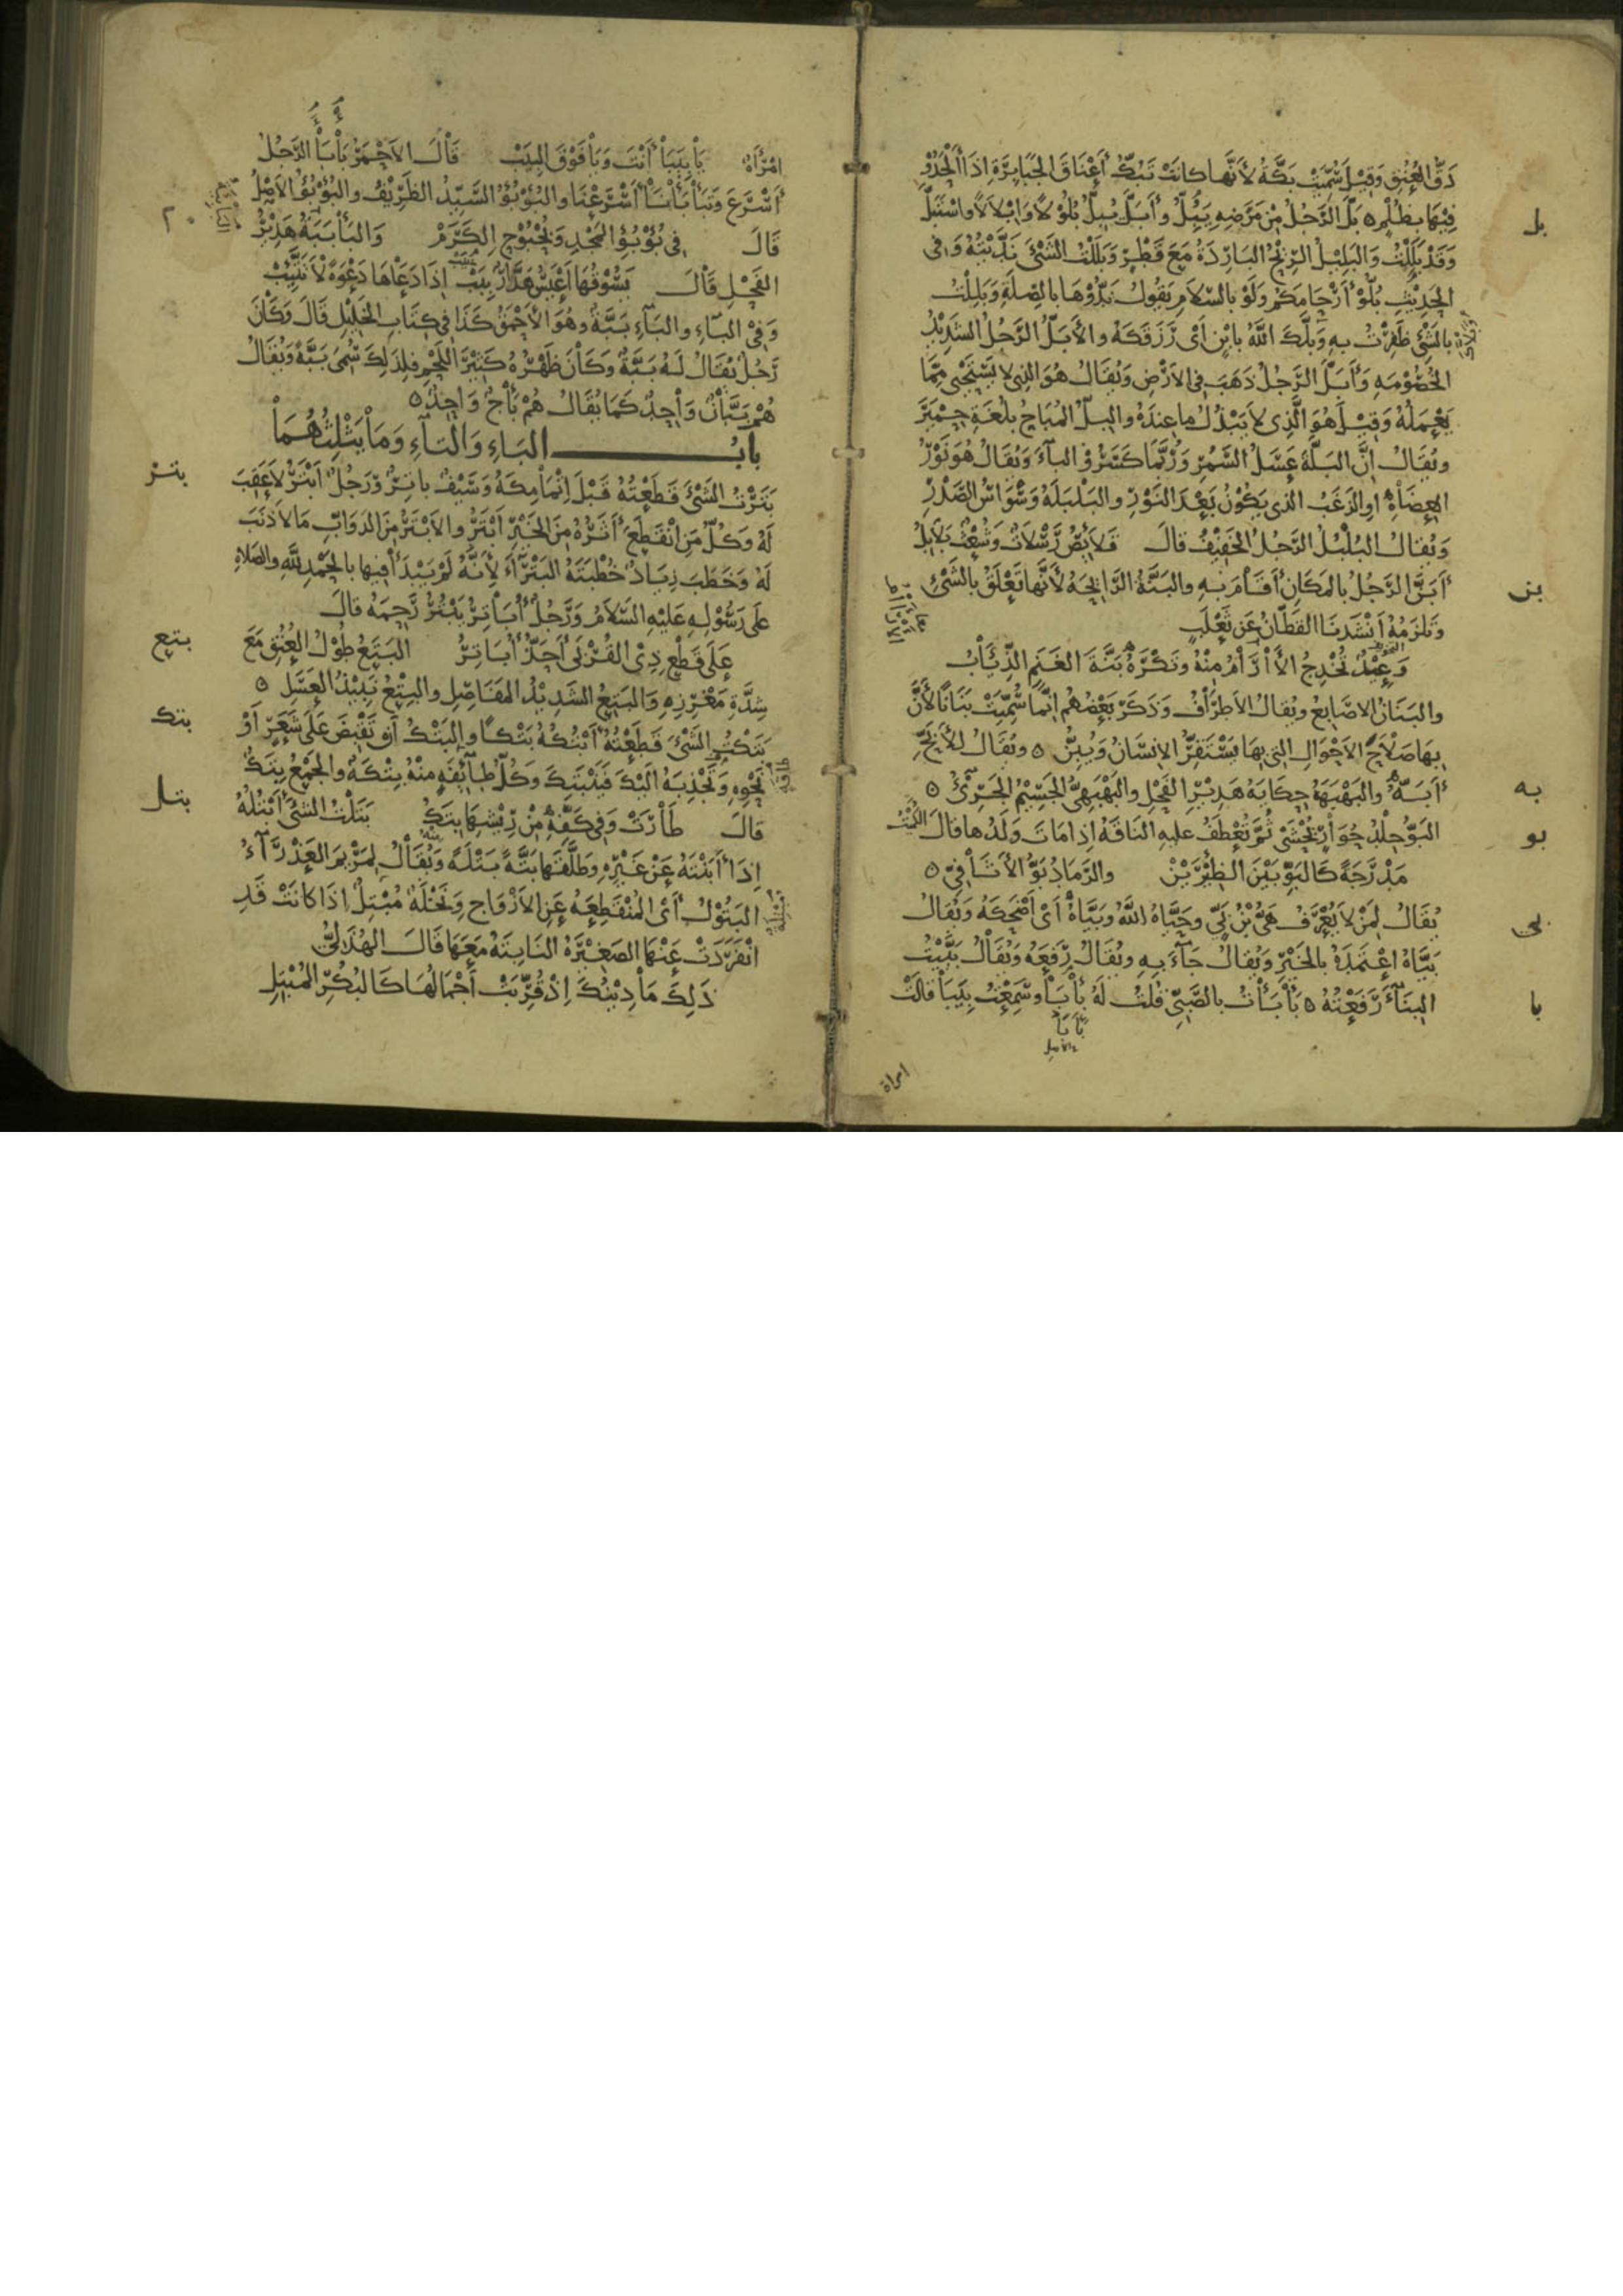 دَقُّ العُنُقِ وَقِيْلَ سُمِّيَتْ بَكَّةُ لأَنَّهَا كانَتْ تَبُكُّ أَعْنَاقَ الجَبَابِرَةِ اِذَا أَلْحَدُوْا
بل
فِيْهَا بِظُلْمٍ ٥ بَلَّ الرَّجُلُ مِنْ مَرَضِهِ يَبِلُّ وأَبَلَّ يُبِلُّ بُلُوْلاً وَاِبْلاَلاً واسْتَبَلَّ
وَقَدْ بَلِلْتُ وَالبَلِيْلُ الرِّيْحُ البَارِدَةُ مَعَ قَطْرٍ وَبَلَلْتُ الشَّيْئَ نَدَّيْتُهُ وَفِى
الحَدِيْثِ بُلُّوْا أَرْحَامَكُمْ وَلَوْ بالسَّلاَمِ يَقُولُ نَدُّوْهَا بالصِّلَةِ وَبَلِلْتُ
بالشَّيْئِ ظَفِرْتُ بهِ وَبَلَّكَ اللّٰهُ بابْنٍ أَىْ رَزَقَكَهُ والأَبَلُّ الرَّجُلُ الشَدِيْدُ
الخُصُوْمَةِ وَأَبَلَّ الرَّجُلُ ذَهَبَ فِى الاَرْضِ وَيُقَالُ هُوَ الذِى لا يَسْتَحْيِى مِمَّا
يَعْمَلُهُ وَقِيْلَ هُوَ الَّذِى لاَ يَبْذُلُ ما عِندَهُ والبِلُّ المُبَاحُ بِلُغَةِ حِمْيَرَ
ويُقَالُ اِنَّ البَلَّةَ عَسَلُ السَّمُرِ وَرُبَّمَا كَسَرُوْا البَآءَ وَيُقَالُ هُوَ نَوْرُ
العِضَاهِ اوِ الزَغَبُ الذى يَكُوْنُ بَعْدَ النَوْرِ والبَلْبَلَةُ وَسْوَاسُ الصَدْرِ
وَيُقالُ البُلْبُلُ الرَّجُلُ الخَفِيْفُ قالَ قَلاَئِصُ رَسْلاَتٌ وَشُعْثٌ بَلاَبِلُ
بن
أَبَنَّ الرَّجُلُ بالمَكَانِ أَقَامَ بهِ والبَنَّةُ الرَّائِحَةُ لأَنَّها تَعْلَقُ بالشَيْئِ
وتَلزَمُهُ أَنْشَدَنَا القَطَّانُ عَن ثَعْلَبٍ
وَعِيْدٌ تُخْدِجُ الأَرْآمُ مِنْهُ وتَكْرَهُ بَنَّةَ الغَنَمِ الذِّيَابُ
والبَنَانُ الاصَابِعُ ويُقالُ الأَطرَافُ وَذَكَرَ بَعْضُهُم اِنَّمَا سُمِّيَتْ بَنَانًا لأَنَّ
بِهَا صَلاَحَ الاَحْوَالِ التِى بِهَا يَسْتَقِرُّ الإِنسَانُ وَيُبِنُّ ٥ ويُقَالُ لِلأَبَحِّ
به
أَبَهُّ والبَهْبَهَةُ حِكَايَةُ هَدِيْرِ الفَحْلِ والبَهْبَهِىُّ الجَسِيْمُ الجَرِىْئُ ٥
بو
البَوُّ جِلْدُ حُوَارٍ يُحْشَى ثُمَّ تُعْطَفُ عليهِ النَاقَةُ اِذا مَاتَ وَلَدُها قالَ الكُمَيْتُ
مَدْرَجَةً كَالبَوِّ بَيْنَ الظِئْرَيْنْ والرَمَادُ بَوُّ الأَثَافِىِّ ٥
بى
يُقَالُ لِمَنْ لاَ يُعْرَفُ هَىُّ بْنُ بَىٍّ وحَيَّاهُ اللّٰهُ وبَيَّاهُ أَىْ أَضْحَكَهُ وَيُقالُ
بَيَّاهُ اعْتَمَدَهُ بالخَيْرِ وَيُقالُ جَآءَ بِهِ ويُقَالُ رَفَعَهُ وَيُقَالُ بَيَّيْتُ
با
البِنَآءَ رَفَعْتُهُ ٥ بَأْبَأْتُ بالصَّبِىِّ قُلتُ لَهُ بِأَبَا وسَمِعْتُ بِيَبَا قالَتْ
امراة
امْرَأَةٌ يَا بِيَبَا أَنْتَ وَيَا فَوْقَ البِيَبْ قَالَ الاَحْمَرُ بَأْبَأَ الرَّجُلُ
أَسْرَعَ وَتَبَأْبَأْنَا أَسْرَعْنَا والبُؤْبُؤُ السَّيِّدُ الظَرِيْفُ والبُؤْبُؤُ الاَصْلُ
قَالَ فِى بُؤْبُؤِ المَجْدِ وَبُحْبُوْحِ الكَرَمْ وَالبَأْبَبَةُ هَدِيْرُ
الفَحْلِ قَالَ يَسُوْقُهَا أَعْيَسُ هَدَّارٌ بَبَبْ اِذَا دَعَاهَا دَعْوَةً لاَ تَتَّيِبْ
وَفِى البَآءِ والبَآءِ بَبَّةُ وهُوَ الاَحْمَقُ كَذَا فِى كِتَابِ الخَلِيْلِ قَالَ وَكَانَ
رَجُلٌ يُقَالُ لَهُ بَبَّةُ وَكَانَ ظَهْرُهُ كَثِيْرَ اللَحْمِ فلِذٰلِكَ سُمِّىَ بَبَّةً وَيُقَالُ
هُمْ بَبَّانٌ وَاحِدٌ كَمَا يُقَالُ هُمْ بَأْجٌ وَاحِدٌ ٥
بابُ البَاءِ وَالتَآءِ وَمَا يَثْلِثُهُمَا
بتر
بَتَرْتُ الشَيْئَ قَطَعْتُهُ قَبْلَ اِتْمَامِكَهُ وَسَيْفٌ باتِرٌ وَرَجُلٌ أَبْتَرُ لاَ عَقِبَ
لَهُ وَكُلُّ مَنِ انْقَطَعَ أَثَرُهُ مِنَ الخَيْرِ أَبْتَرُ والاَبْتَرُ مِنَ الدَوَابِّ مَا لاَ ذَنَبَ
لَهُ وَخَطَبَ زِيَادٌ خُطْبَتَهُ البَتْرَآءَ لأَنَّهُ لَمْ يَبْدَأْ فِيها بالحَمْدِ لِلّٰهِ والصَلاةِ
عَلَى رَسُوْلِهِ عَلَيْهِ السَلاَمُ وَرَجُلٌ أُبَاتِرٌ يَبْتُرُ رَحِمَهُ قالَ
بتع
عَلَى قَطْعِ ذِى القُرْبَى أَحَذُّ أُبَاتِرُ البَتَعُ طُوْلُ العُنُقِ مَعَ
شِدَّةِ مَغْرِزِهِ وَالبَتِعُ الشَدِيْدُ المَفَاصِلِ والبِتْعُ نَبِيْذُ العَسَلِ ٥
بتك
بَتَكْتُ الشَيْئَ قَطَعْتُهُ أَبْتُكُهُ بَتْكًا والبَتْكُ أَن تَقْبِضَ عَلَى شَعَرٍ أَوْ
نَحْوِهِ وَتَجْذِبَهُ اِلَيْكَ فَيَنْبَتِكَ وَكُلُّ طآئِفَةٍ مِنْهُ بِتْكَةٌ والجَمْعُ بِتَكٌ
بتل
قالَ طَارَتْ وَفِى كَفِّهِ مِنْ رِيْشِهَا بِتَكُ بَتَلْتُ الشَيْئَ أَبْتُلُهُ
اِذَا أَبَنْتَهُ عَنْ غَيْرِهِ وطَلَّقَهَا بَتَّةً بَتْلَةً وَيُقَالُ لِمَرْيَمَ العَذْرَآءِ
البَتُوْلُ أَىِ المُنْقَطِعَةُ عَنِ الأَزْوَاجِ وَنَخْلَةٌ مُبْتِلٌ اِذَا كانَتْ قَدِ
انْفَرَدَتْ عَنْهَا الصَغِيْرَةُ النَابِتَةُ مَعَهَا قَالَ الهُذَلِىُّ
ذٰلِكَ مَا دِيْنُكَ اِذْ قُرِّبَتْ أَجْمَالُهَا كَالبُكُرِ المُبْتِلِ